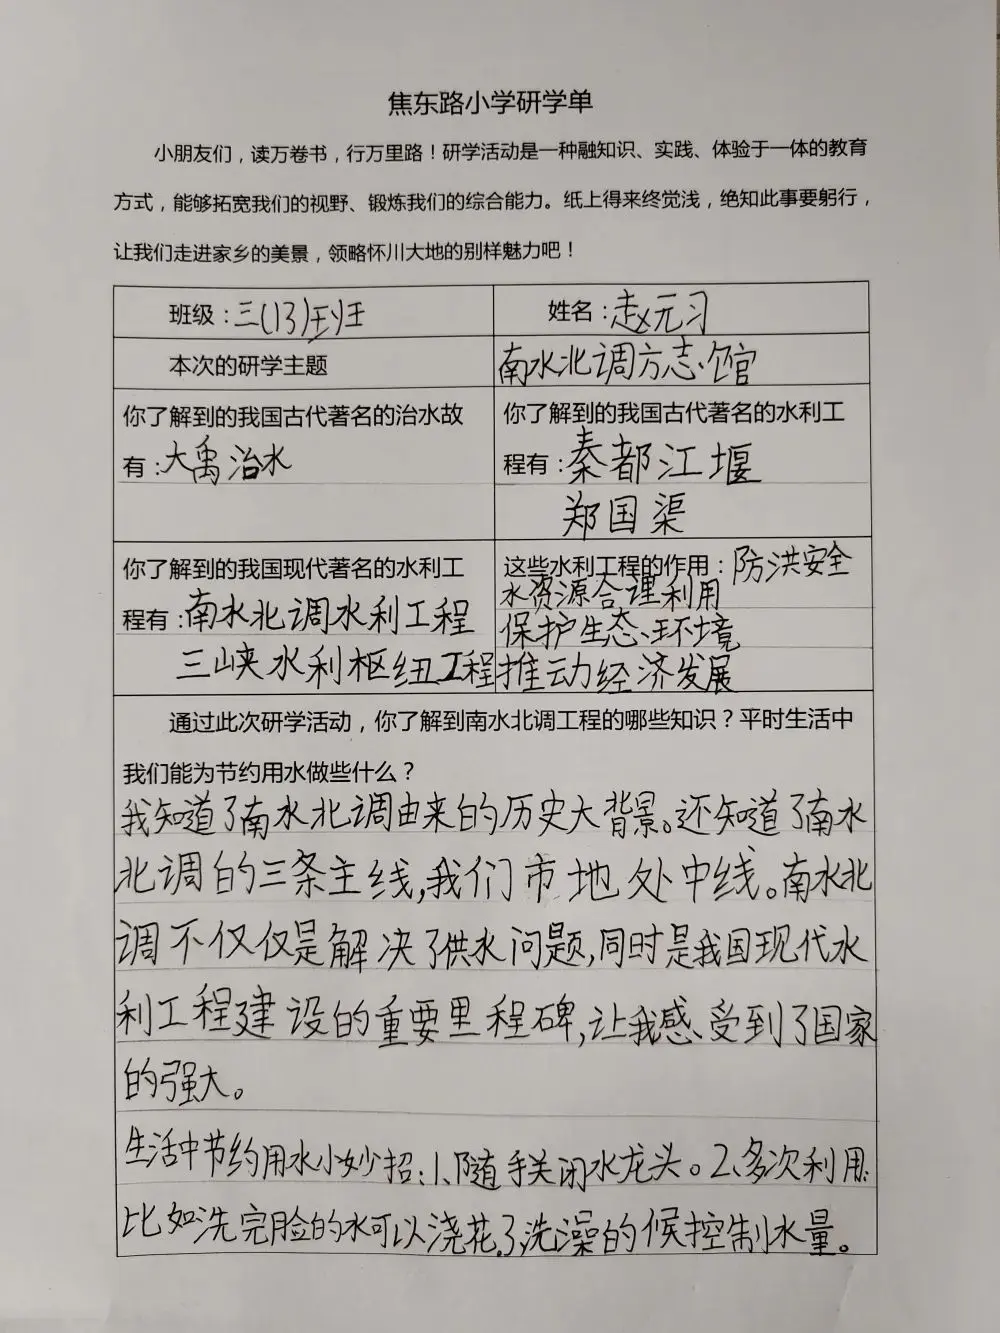 焦东路小学研学单
小朋友们，读万卷书，行万里路！研学活动是一种融知识、实践、体验于一体的教育
方式，能够拓宽我们的视野、锻炼我们的综合能力。纸上得来终觉浅，绝知此事要躬行，
让我们走进家乡的美景，领略怀川大地的别样魅力吧！
班级：三(13)班班
姓名：赵元习
本次的研学主题
南水北调方志馆
你了解到的我国古代著名的治水故
有：大禹治水
你了解到的我国古代著名的水利工
程有：秦都江堰
郑国渠
你了解到的我国现代著名的水利工
程有：南水北调水利工程
三峡水利枢纽工程
这些水利工程的作用：防洪安全
水资源合理利用
保护生态环境
推动经济发展
通过此次研学活动，你了解到南水北调工程的哪些知识？平时生活中
我们能为节约用水做些什么？
我知道了南水北调由来的历史大背景。还知道了南水
北调的三条主线，我们市地处中线。南水北
调不仅仅是解决了供水问题，同时是我国现代水
利工程建设的重要里程碑，让我感受到了国家
的强大。
生活中节约用水小妙招：1、随手关闭水龙头。2、多次利用：
比如洗完脸的水可以浇花。3、洗澡的候控制水量。